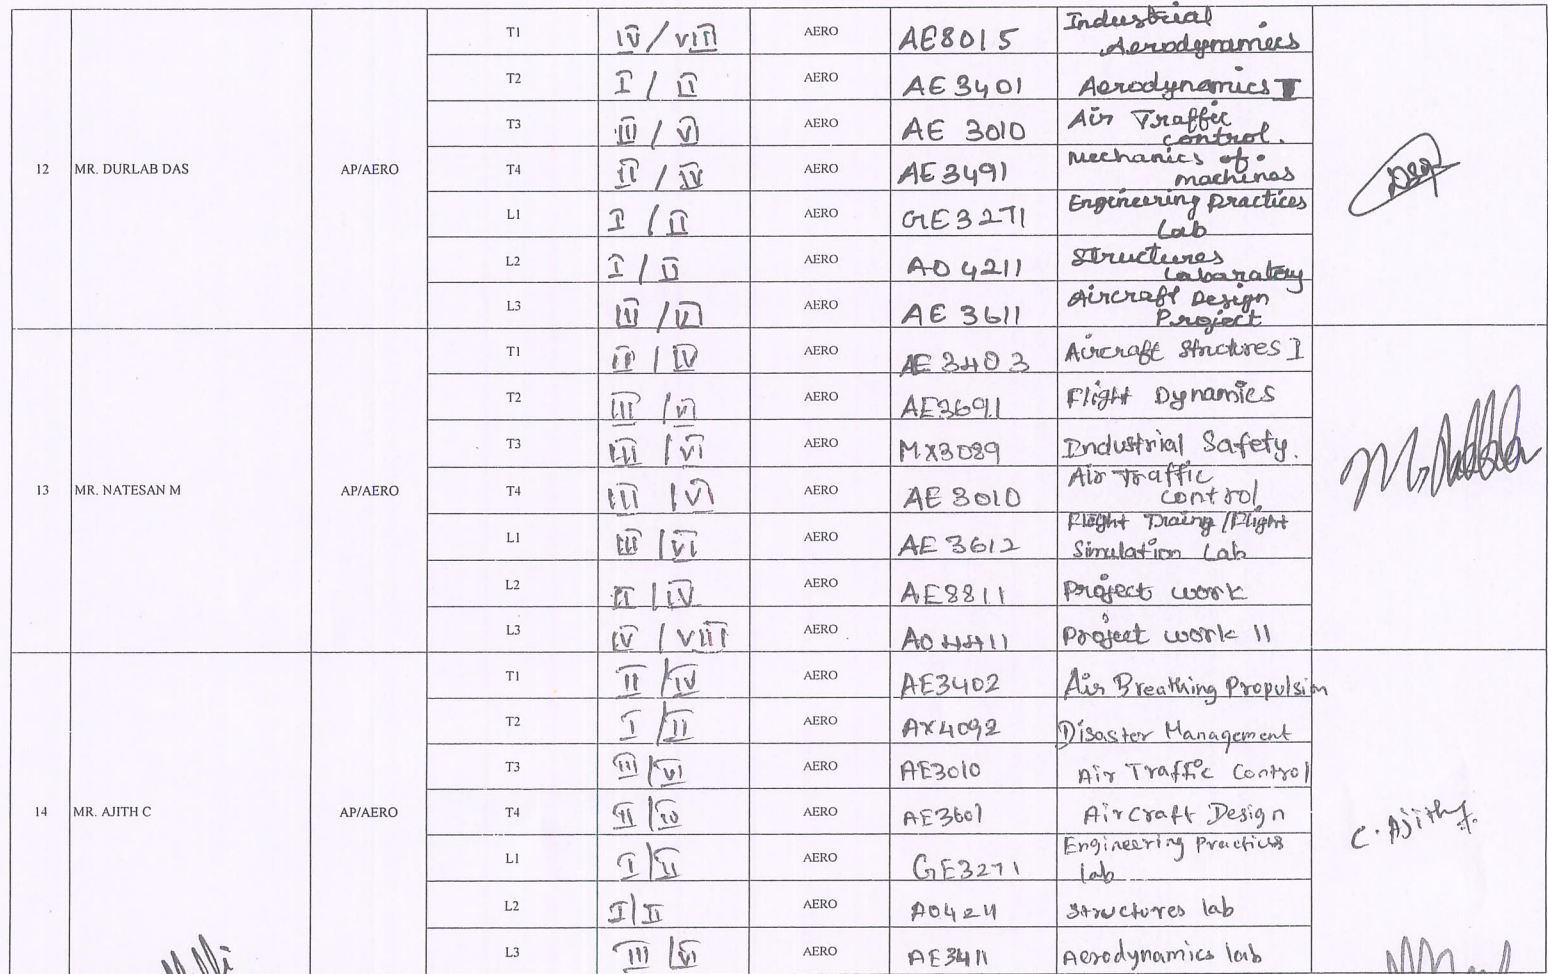 12 MR. DURLAB DAS AP/AERO
T1 IV / VIII AERO AE8015 Industrial Aerodynamics
T2 I / II AERO AE3401 Aerodynamics I
T3 III / VI AERO AE 3010 Air Traffic control.
T4 II / IV AERO AE3491 Mechanics of machines
L1 I / II AERO GE3271 Engineering Practices Lab
L2 I / II AERO AO4211 Structures Labaratory
L3 III / VI AERO AE 3611 Aircraft Design Project
13 MR. NATESAN M AP/AERO
T1 II / IV AERO AE3403 Aircraft Strctures I
T2 III / VI AERO AE3691 Flight Dynamics
T3 III / VI AERO MX3089 Industrial Safety.
T4 III / VI AERO AE 3010 Air Traffic control
L1 III / VI AERO AE 3612 Flight Traing / Flight Simulation Lab
L2 II / IV AERO AE8811 Project work
L3 IV / VIII AERO AO4411 Project work II
14 MR. AJITH C AP/AERO C. Ajith
T1 II / IV AERO AE3402 Air Breathing Propulsion
T2 I / II AERO AX4092 Disaster Management
T3 III / VI AERO AE3010 Air Traffic Control
T4 AERO AE3601 AirCraft Design
L1 I / II AERO GE3271 Engineering Practices lab
L2 I / II AERO AO4211 Structures lab
L3 III / VI AERO AE3411 Aerodynamics lab